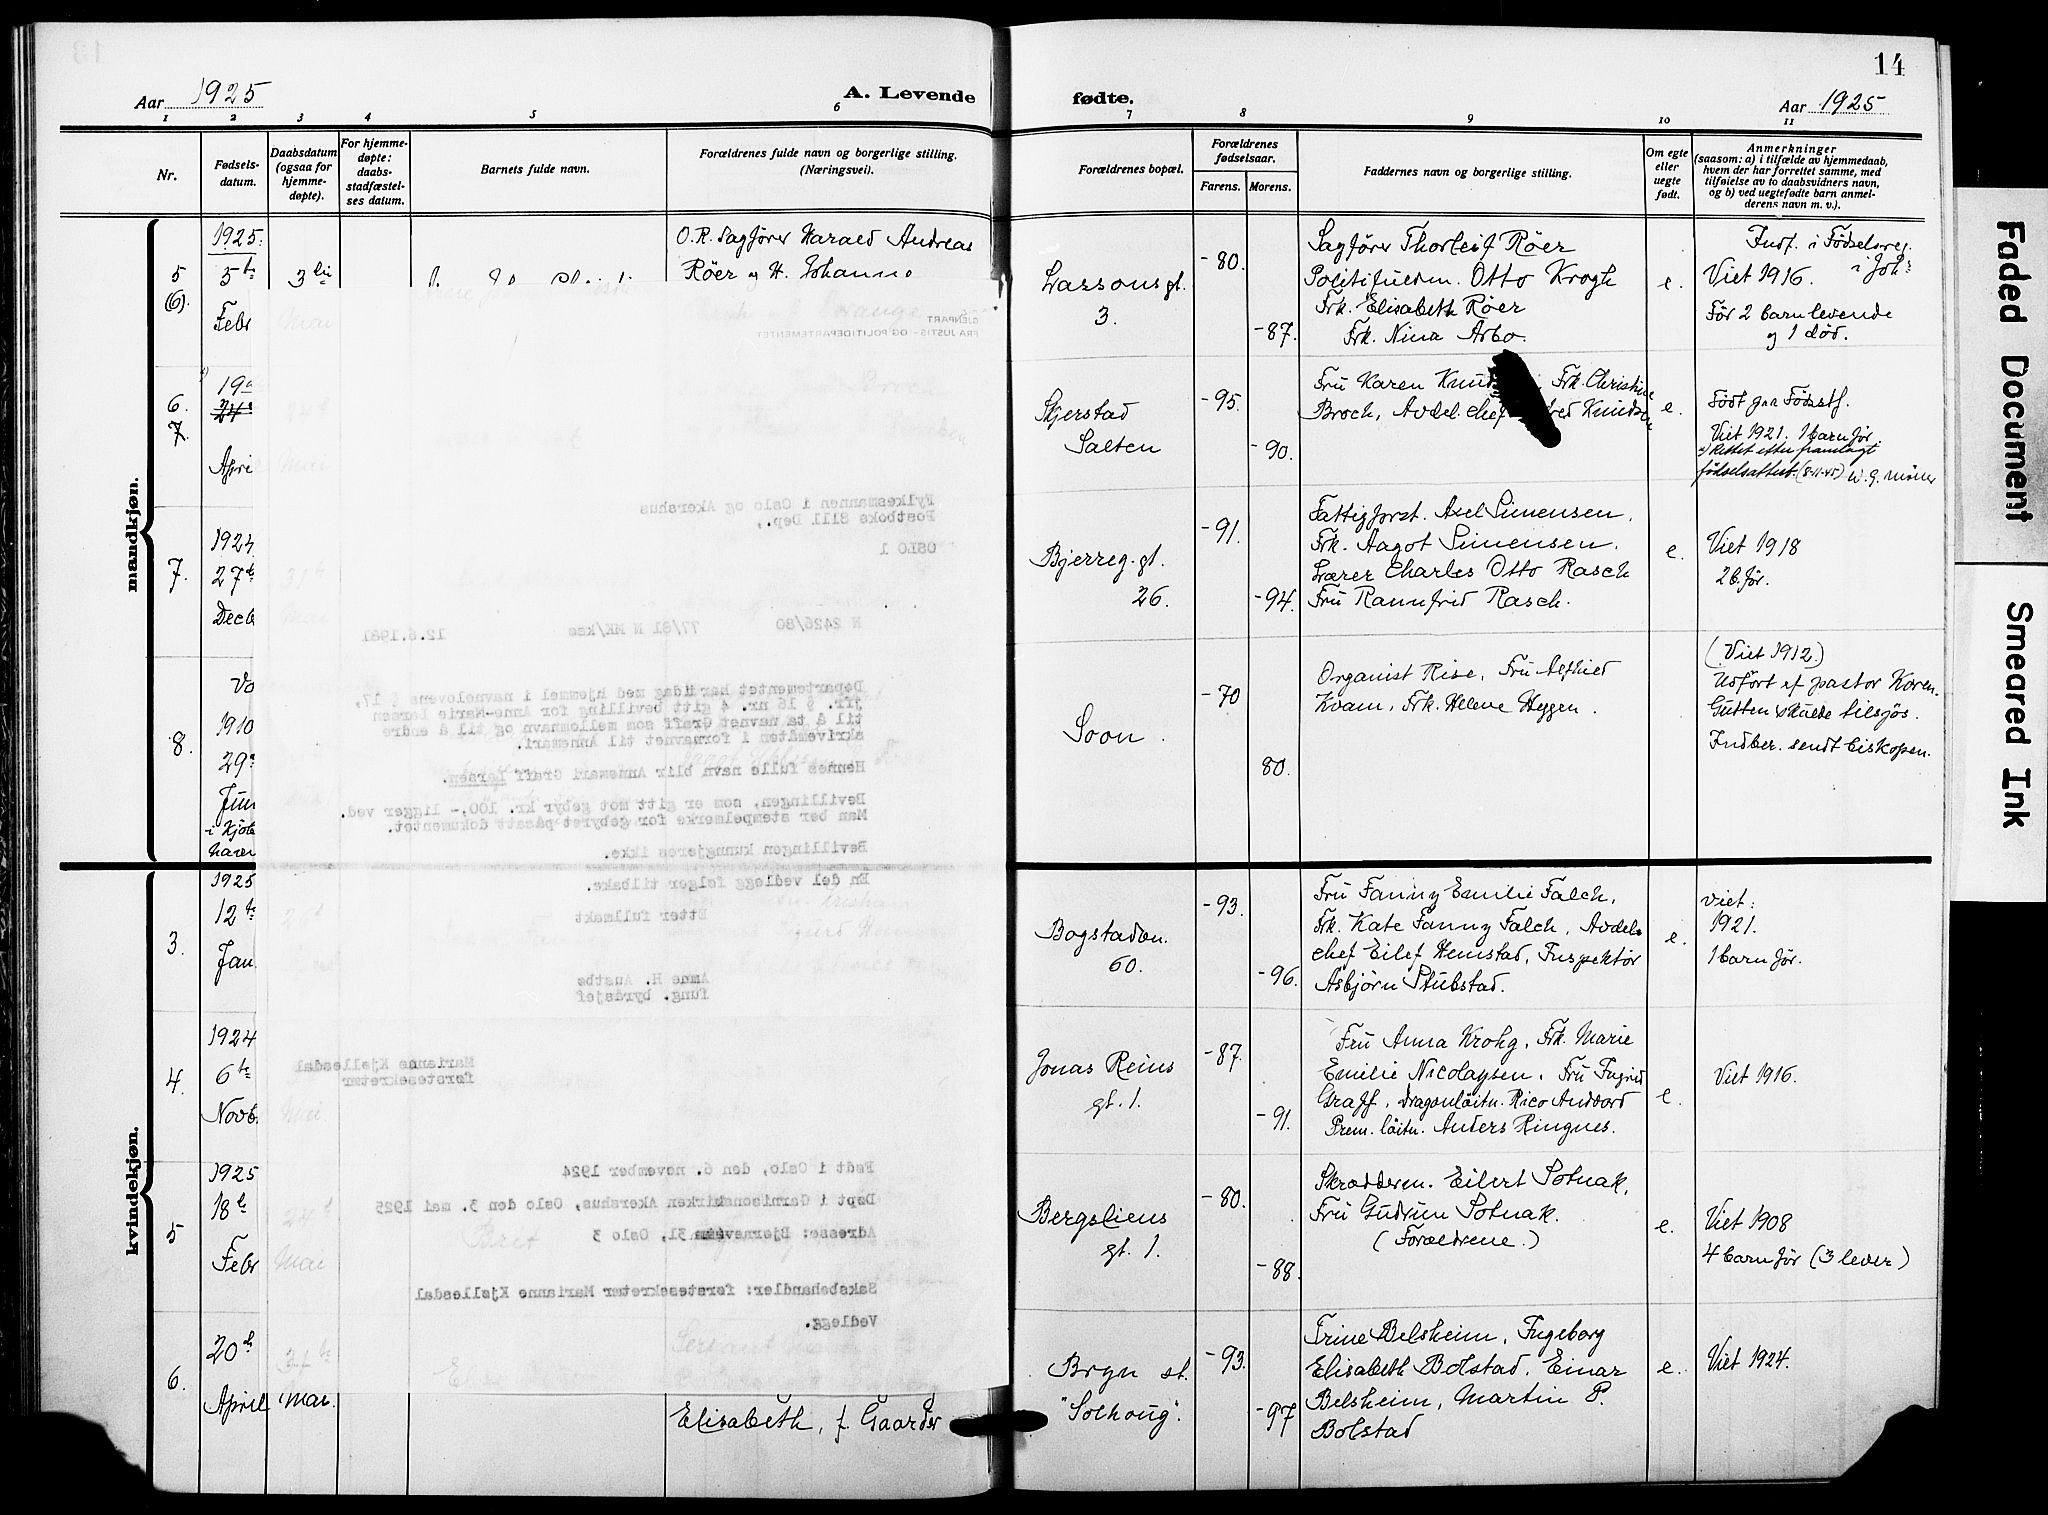 14
Aar 1925
A. Levende
fødte.
Aar 1925
1 2 3 4 5 6 7 8 9 10 11
Nr.
Fødsels-
datum.
Daabsdatum
(ogsaa for
hjemme-
døpte).
For hjemme-
døpte:
daabs-
stadfæstel-
ses datum.
Barnets fulde navn.
Forældrenes fulde navn og borgerlige stilling.
(Næringsvei).
Forældrenes bopæl.
Forældrenes
fødselsaar.
Farens. Morens.
Faddernes navn og borgerlige stilling.
Om egte
eller
uegte
født.
Anmerkninger
(saasom: a) i tilfælde av hjemmedaab,
hvem der har forrettet samme, med
tilføielse av to daabsvidners navn,
og b) ved uegtefødte barn anmel-
derens navn m. v.).
mandkjøn.
5
(6).
1925.
5te
Febr
3die
O.R. Sagfører Harald Andreas
Røer og H. Johanne
Lassonsgt.
3.
-80.
-87.
Sagfører Thorleif Röer
Politifuldm. Otto Krogh
Frk. Elisabeth Röer
Frk. Nina Arbo.
e.
Indf. i Fødselsreg.
Viet 1916.
Før 2 barn levende
og 1 død.
6.
7.
19
24
April
Skjerstad
Salten
-95.
-90.
Fru Karen Frk. Christine
Broch, Avdel. chef Knudsen
e.
Født paa Fødestf.
Viet 1921. 1 barn før.
Rettet etter framlagt
fødselsattest. (8-11-45)
7.
1924
27de
Decb
Bjerreg. gt.
26.
-91.
-94.
Fattigforst. Axel Simensen.
Frk. Aagot Simensen.
Lærer Charles Otto Rasch
Fru Rannfrid Rasch.
e.
Viet 1918
2 b. før.
8.
1910
29
Jun
i Kjøb
haven
Soon.
-70
80.
Organist Rise, Fru
Kvam, Frk. Helene Heggen.
(Viet 1912)
Udført af pastor Koren.
Gutten skulde tilsjøs.
Indber. sendt biskopen.
GJENPART
FRA JUSTIS- OG POLITIDEPARTEMENTET
Fylkesmannen i Oslo og Akershus
Postboks 8111 Dep.,
OSLO 1
N 2426/80 77/81 N MK/kso 12.6.1981
Departementet har idag med hjemmel i navnelovens § 17,
jfr. § 16 nr. 4 gitt bevilling for Anne-Marie Larsen
til å ta navnet Graff som mellomnavn og til å endre
skrivemåten i fornavnet til Annemari.
Hennes fulle navn blir Annemari Graff Larsen.
Bevillingen, som er gitt mot gebyr kr. 100,- ligger ved.
Man ber stempelmerke for gebyret påsatt dokumentet.
Bevillingen kunngjøres ikke.
En del vedlegg følger tilbake.
Etter fullmakt
Anne H. Austbø
fung. byråsjef
Marianne Kjøllesdal
førstesekretær
Født i Oslo, den 6. november 1924
Døpt i Garnisonskirken Akershus, Oslo den 3. mai 1925
Adresse: Bjørneveien 31, Oslo 3
Saksbehandler: førstesekretær Marianne Kjøllesdal
Vedlegg.
kvindekjøn.
3.
1925
12te
Jan.
Bogstadvn.
60.
-93.
-96.
Fru Fanny Emilie Falch,
Frk. Kate Fanny Falch, Avdels
chef Eilef Hemstad, Inspektør
Asbjørn Stubstad.
e.
Viet:
1921.
1 barn før.
4.
1924
6te
Novb.
Jonas Reins
gt. 1.
-87.
-91.
Fru Anna Krohg, Frk. Marie
Emilie Nicolaysen, Fru Ingrid
Graff, Dragonløitn. Rico Andvord
Prem. løitn. Anders Ringnes.
e.
Viet 1916.
5
1925
18de
Febr
Bergsliens
gt. 1.
-80.
-88.
Skrædderm. Eilert Solnak,
Fru Gudrun Solnak.
(Forældrene.)
e.
Viet 1908
4 barn før (3 lever)
6.
20de
April
Mai.
Elisabeth, f. Gaarder
Bryn st.
"Solhoug".
-93.
-97
Trine Belsheim, Ingeborg
Elisabeth Bolstad, Einar
Belsheim, Martin P.
Bolstad
e.
Viet 1924.
Faded Document
Smeared Ink